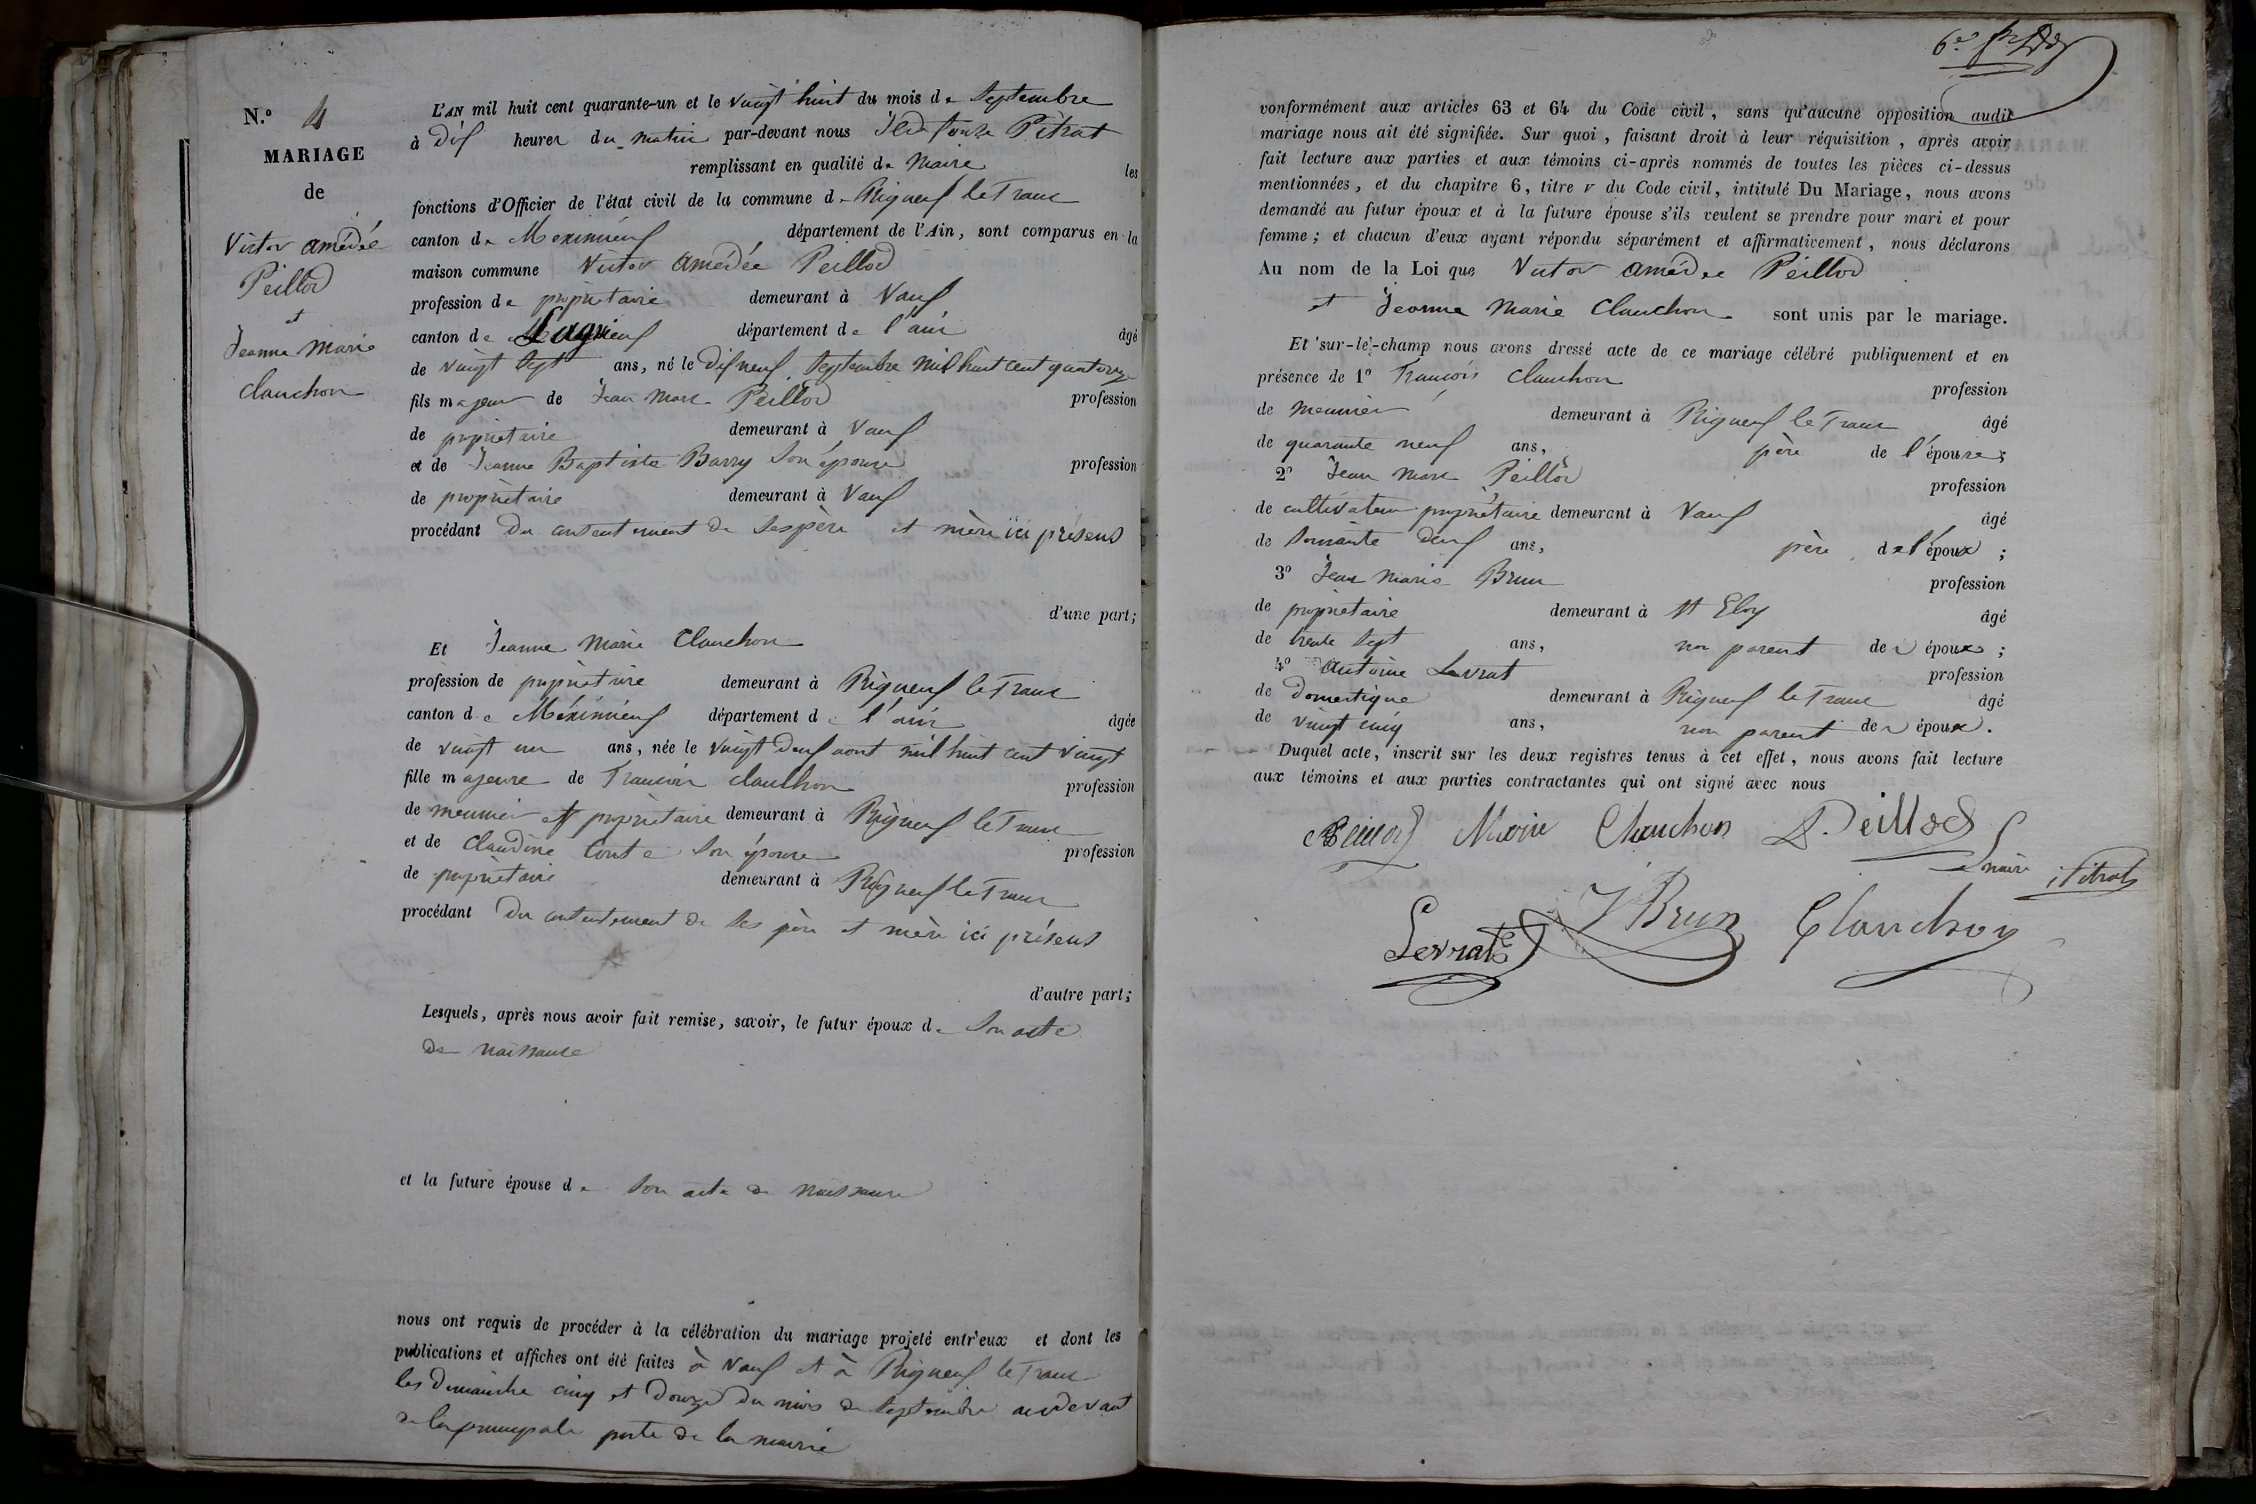 N.o 4
MARIAGE
de
Victor amédée
Peillod
et
Jeanne Marie
Clauchon
L'AN mil huit cent quarante-un et le vingt huit du mois de Septembre
à dix heures du matin par-devant nous Ildefonse Pitrat
remplissant en qualité de Maire les
fonctions d'Officier de l'état civil de la commune de Rigneux le Franc
canton de Meximieux département de l'Ain, sont comparus en la
maison commune Victor Amédée Peillod
profession de propriétaire demeurant à Vaux
canton de Lagnieu département de l'ain âgé
de vingt sept ans, né le dix neuf Septembre mil huit cent quatorze
fils majeur de Jean Marc Peillod profession
de propriétaire demeurant à Vaux
et de Jeanne Baptiste Barry son épouse profession
de propriétaire demeurant à Vaux
procédant du consentement de ses père et mère ici présens
d'une part;
Et Jeanne Marie Clauchon
profession de propriétaire demeurant à Rigneux le Franc
canton de Méximieux département de l'ain âgée
de vingt un ans, née le vingt deux aout mil huit cent vingt
fille majeure de François Clauchon profession
de meunier et propriétaire demeurant à Rigneux le Franc
et de Claudine Conte son épouse profession
de propriétaire demeurant à Rigneux le Franc
procédant du consentement de ses père et mère ici présens
d'autre part;
Lesquels, après nous avoir fait remise, savoir, le futur époux de son acte
de naissance
et la future épouse de son acte de naissance
nous ont requis de procéder à la célébration du mariage projeté entr'eux et dont les
publications et affiches ont été faites à Vaux et à Rigneux le Franc
les dimanche cinq et douze du mois de Septembre audevant
de la principale porte de la mairie
conformément aux articles 63 et 64 du Code civil, sans qu'aucune opposition audit
mariage nous ait été signifiée. Sur quoi, faisant droit à leur réquisition, après avoir
fait lecture aux parties et aux témoins ci-après nommés de toutes les pièces ci-dessus
mentionnées, et du chapitre 6, titre V du Code civil, intitulé Du Mariage, nous avons
demandé au futur époux et à la future épouse s'ils veulent se prendre pour mari et pour
femme; et chacun d'eux ayant répondu séparément et affirmativement, nous déclarons
Au nom de la Loi que Victor Amédée Péillod
et Jeanne Marie Clauchon sont unis par le mariage.
Et sur-le-champ nous avons dressé acte de ce mariage célébré publiquement et en
présence de 1o François Clauchon profession
de meunier demeurant à Rigneux le Franc âgé
de quarante neuf ans, père de l'épouse;
2o Jean Marc Peillod profession
de cultivateur propriétaire demeurant à Vaux âgé
de soixante deux ans, père de l'époux;
3o Jean Marie Brun profession
de propriétaire demeurant à St Eloy âgé
de trente sept ans, non parent des époux;
4o Antoine Levrat profession
de domestique demeurant à Rigneux le Franc âgé
de vingt cinq ans, non parent des époux.
Duquel acte, inscrit sur les deux registres tenus à cet effet, nous avons fait lecture
aux témoins et aux parties contractantes qui ont signé avec nous
Peillod Marie Clauchon Peillod
maire Pitrat
Levrat J Brun Clauchon